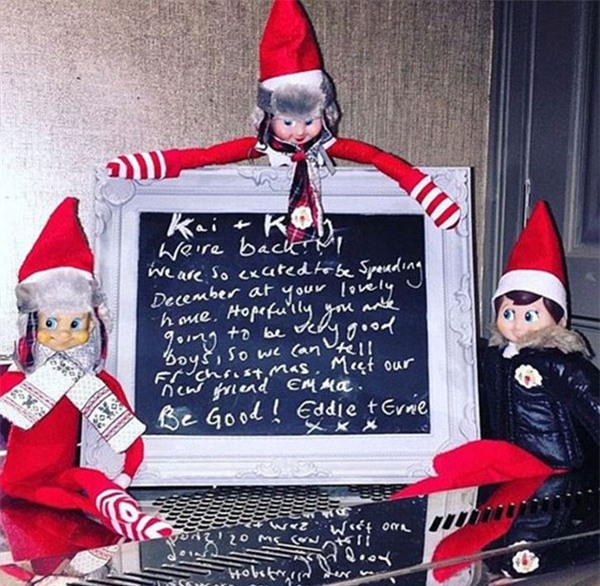 Kai + K
We're back!!!
We are so excited to be Spending
December at your lovely
home. Hopefully you are
going to be very good
boys, so we can tell
Fr christmas. Meet our
new friend EMMA.
Be Good! Eddie + Ernie
x x x